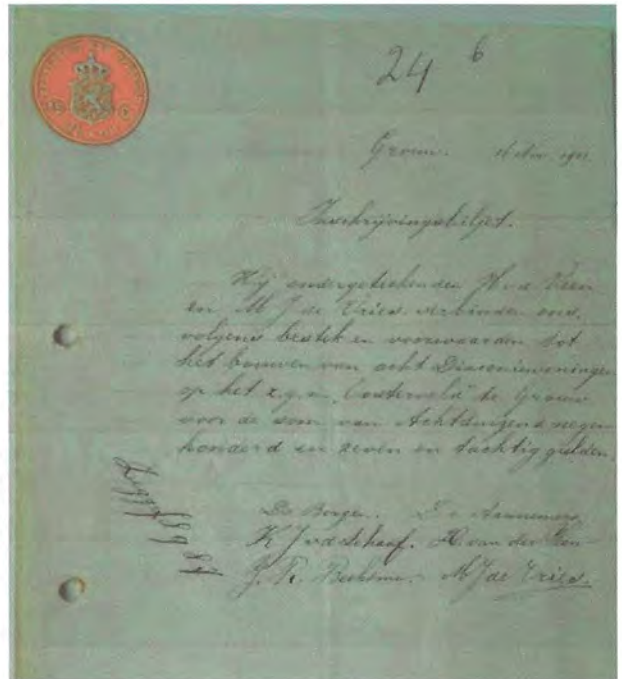 24 6
Grouw.
Inschrijvingsbiljet.
Wij ondergeteekenden H v d Veen
en M J de Vries verbinden ons,
volgens bestek en voorwaarden tot
het bouwen van acht Diaconiewoningen
op het z.g.n. Oosterveld" te Grouw
voor de som van Achtduizend negen
honderd en zeven en tachtig gulden.
De Borgen. De Aannemers
K J vd Schaaf. H. van der Veen
M J de Vries.